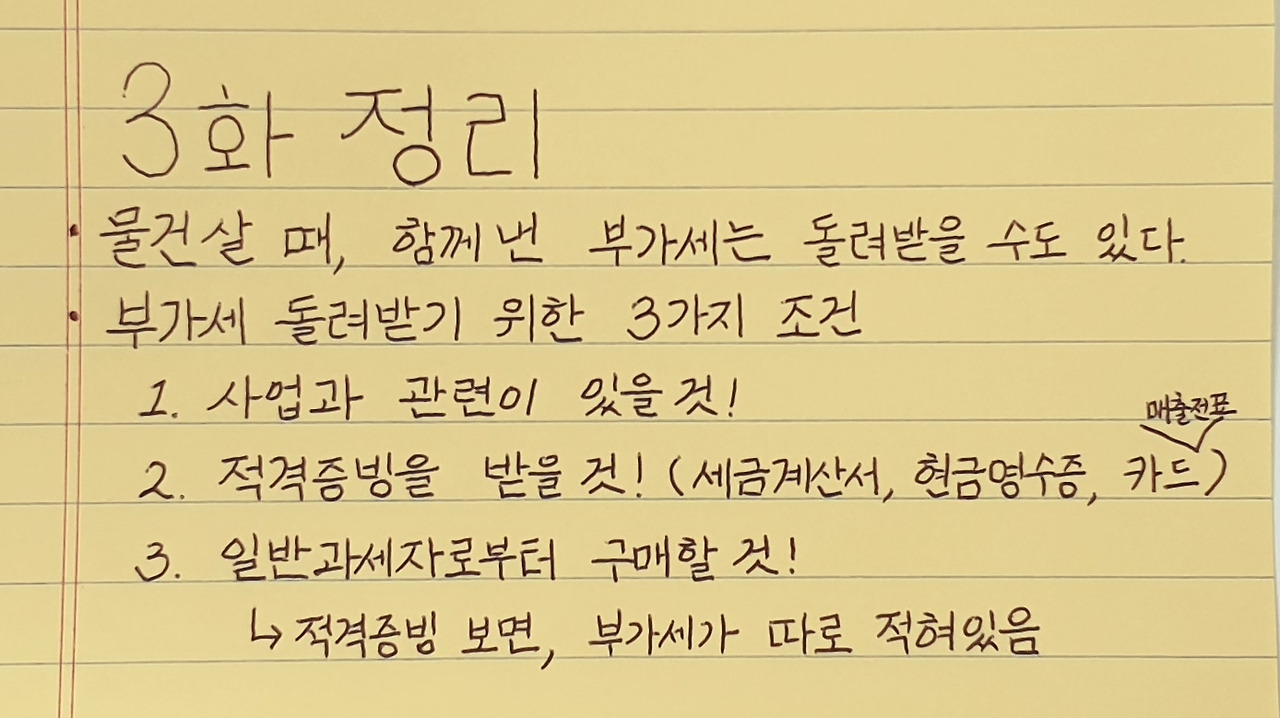 3화 정리
• 물건살 때, 함께 낸 부가세는 돌려받을 수도 있다.
• 부가세 돌려받기 위한 3가지 조건
1. 사업과 관련이 있을 것!
매출전표
2. 적격증빙을 받을 것! (세금계산서, 현금영수증, 카드)
3. 일반과세자로부터 구매할 것!
↳ 적격증빙 보면, 부가세가 따로 적혀있음